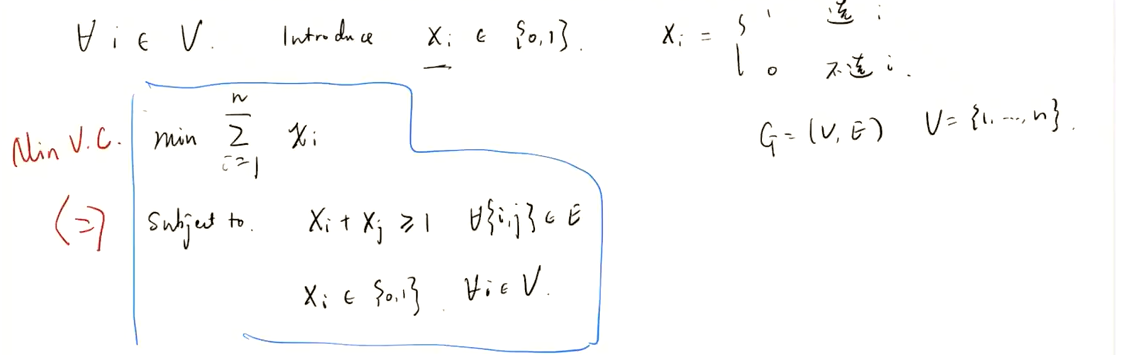 ∀ i ∈ V. Introduce x_i ∈ {0,1}. x_i = { 1 选 i
0 不选 i.
G = (V, E) V = {1, ..., n}.
Min V.C. min ∑_{i=1}^{n} x_i
(=) Subject to. x_i + x_j ⩾ 1 ∀{i,j} ∈ E
x_i ∈ {0,1} ∀i ∈ V.